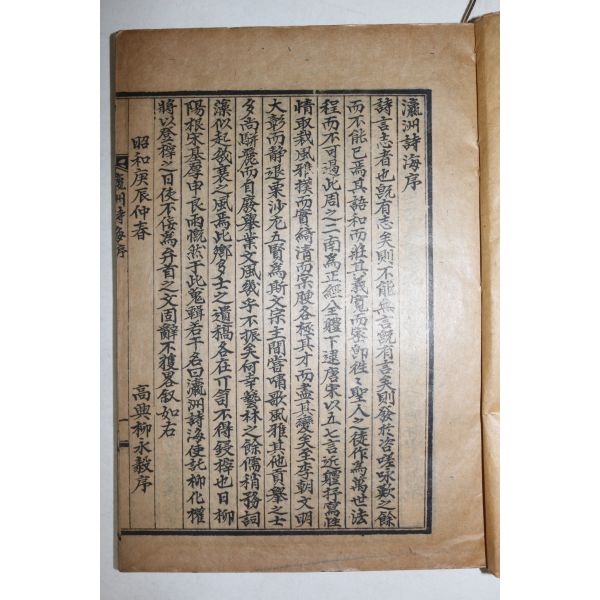 瀛洲詩海序
詩言志者也旣有志矣則不能無言旣有言矣則發於咨嗟咏歎之餘
而不能已焉其語和而莊其義寬而密卽徃之聖人之徒作爲萬世法
程而不可過此周之二南爲正經全體下逮唐宋以五七言近體抒寫性
情取裁風雅樸而實綺清而腴各極其才而盡其變矣至李朝文明
大彰而靜退栗沙尤五賢爲斯文宗主間嘗嘯歌風雅其他貢擧之士
多尙騈麗而自廢擧業文風幾乎不振矣何幸藝林之餘儒稍務詞
藻似起衰之風焉此鄕多士之遺稿各在巾笥不得鋟榟也日柳
陽根宋基厚申良雨慨然于此蒐輯若干名曰瀛洲詩海使託柳化權
將以登榟之日使不佞爲弁首之文固辭不獲畧叙如右
昭和庚辰仲春
高興柳永毅序
瀛洲詩海序
一